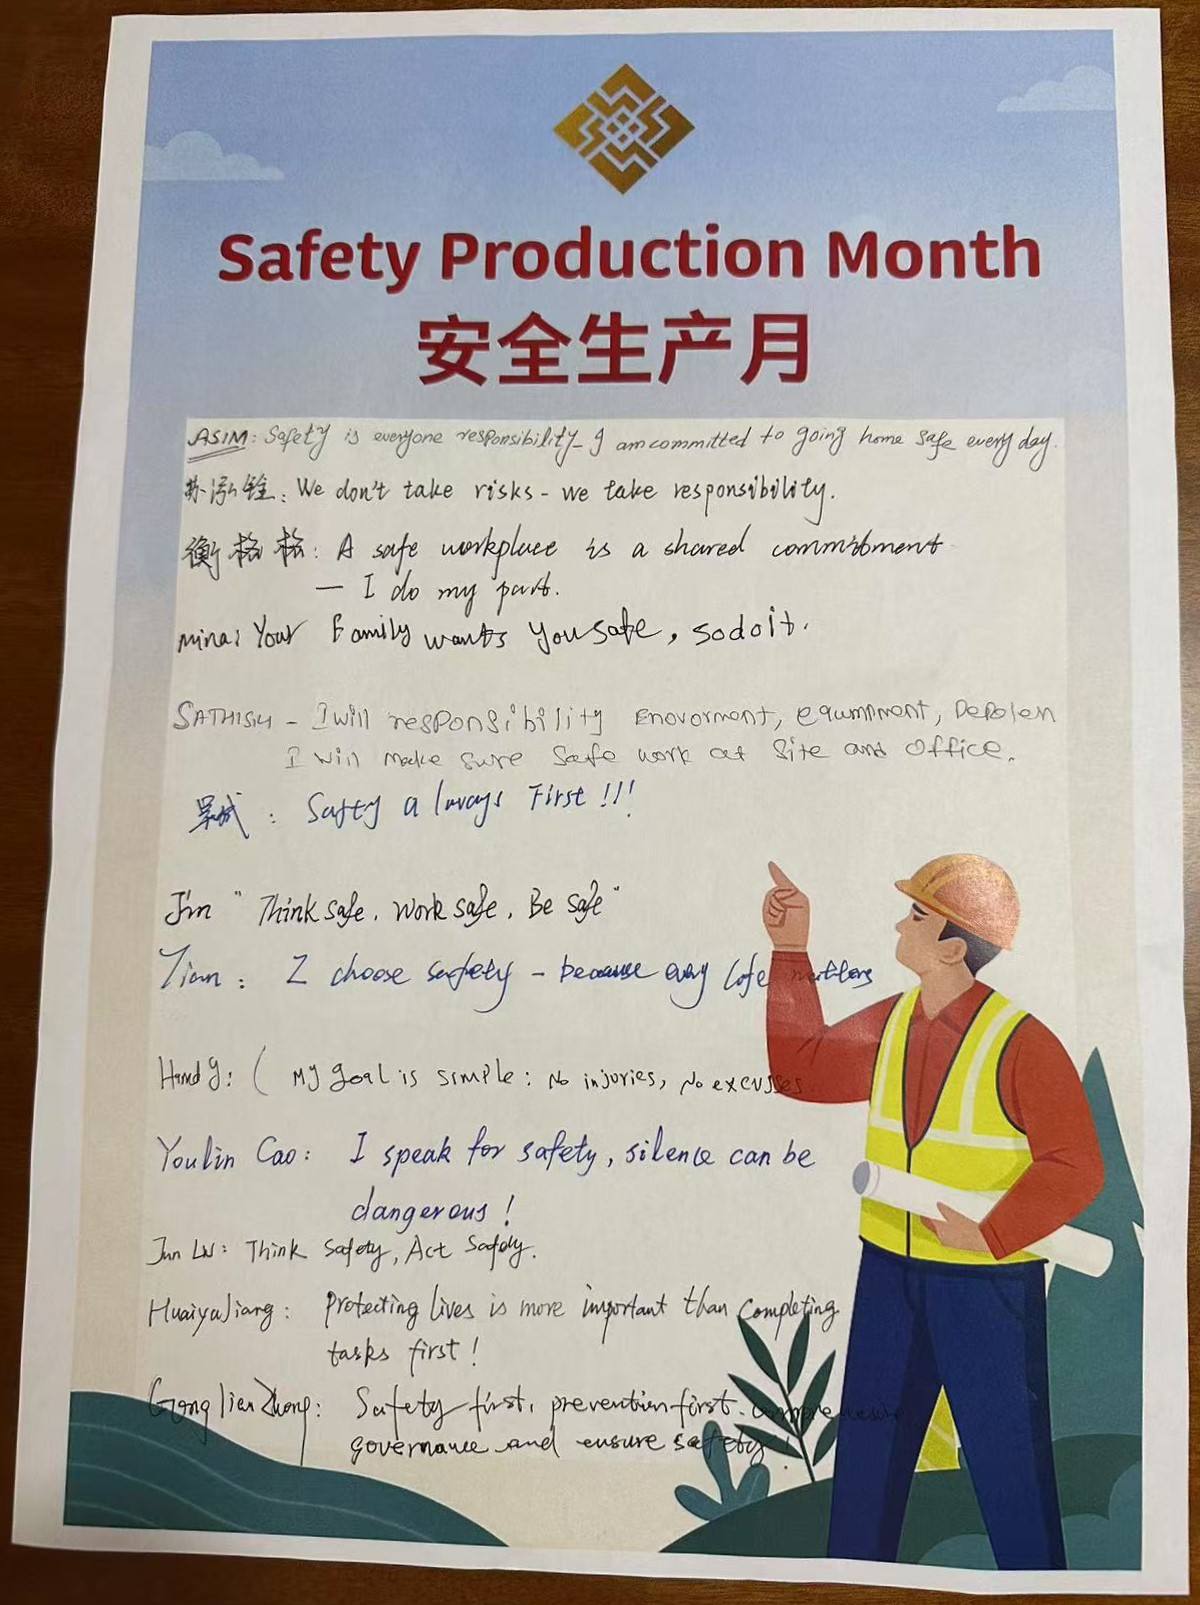 Safety Production Month
安全生产月
ASIM: Safety is everyone responsibility_ I am committed to going home safe every day.
苏泓铨: We don't take risks - we take responsibility.
衡格格: A safe workplace is a shared
— I do my part.
Mina: Your Family wants You safe, so do it.
SATHISH - I will responsibility Enovorment, equmnment,
I will make sure Safe work at Site and Office.
吴斌: Safty always First!!!
Jim " Think safe. Work safe. Be safe"
Tian: I choose safety - because every life matters
My goal is simple: No injuries, No excusses
Youlin Cao: I speak for safety, silence can be
dangerous!
Jun Lu: Think Safety, Act Safely.
Huaiyu Jiang: Protecting lives is more important than Completing
tasks first!
Gonglian Zhong: Safety first, prevention first.
governance and ensure safety!